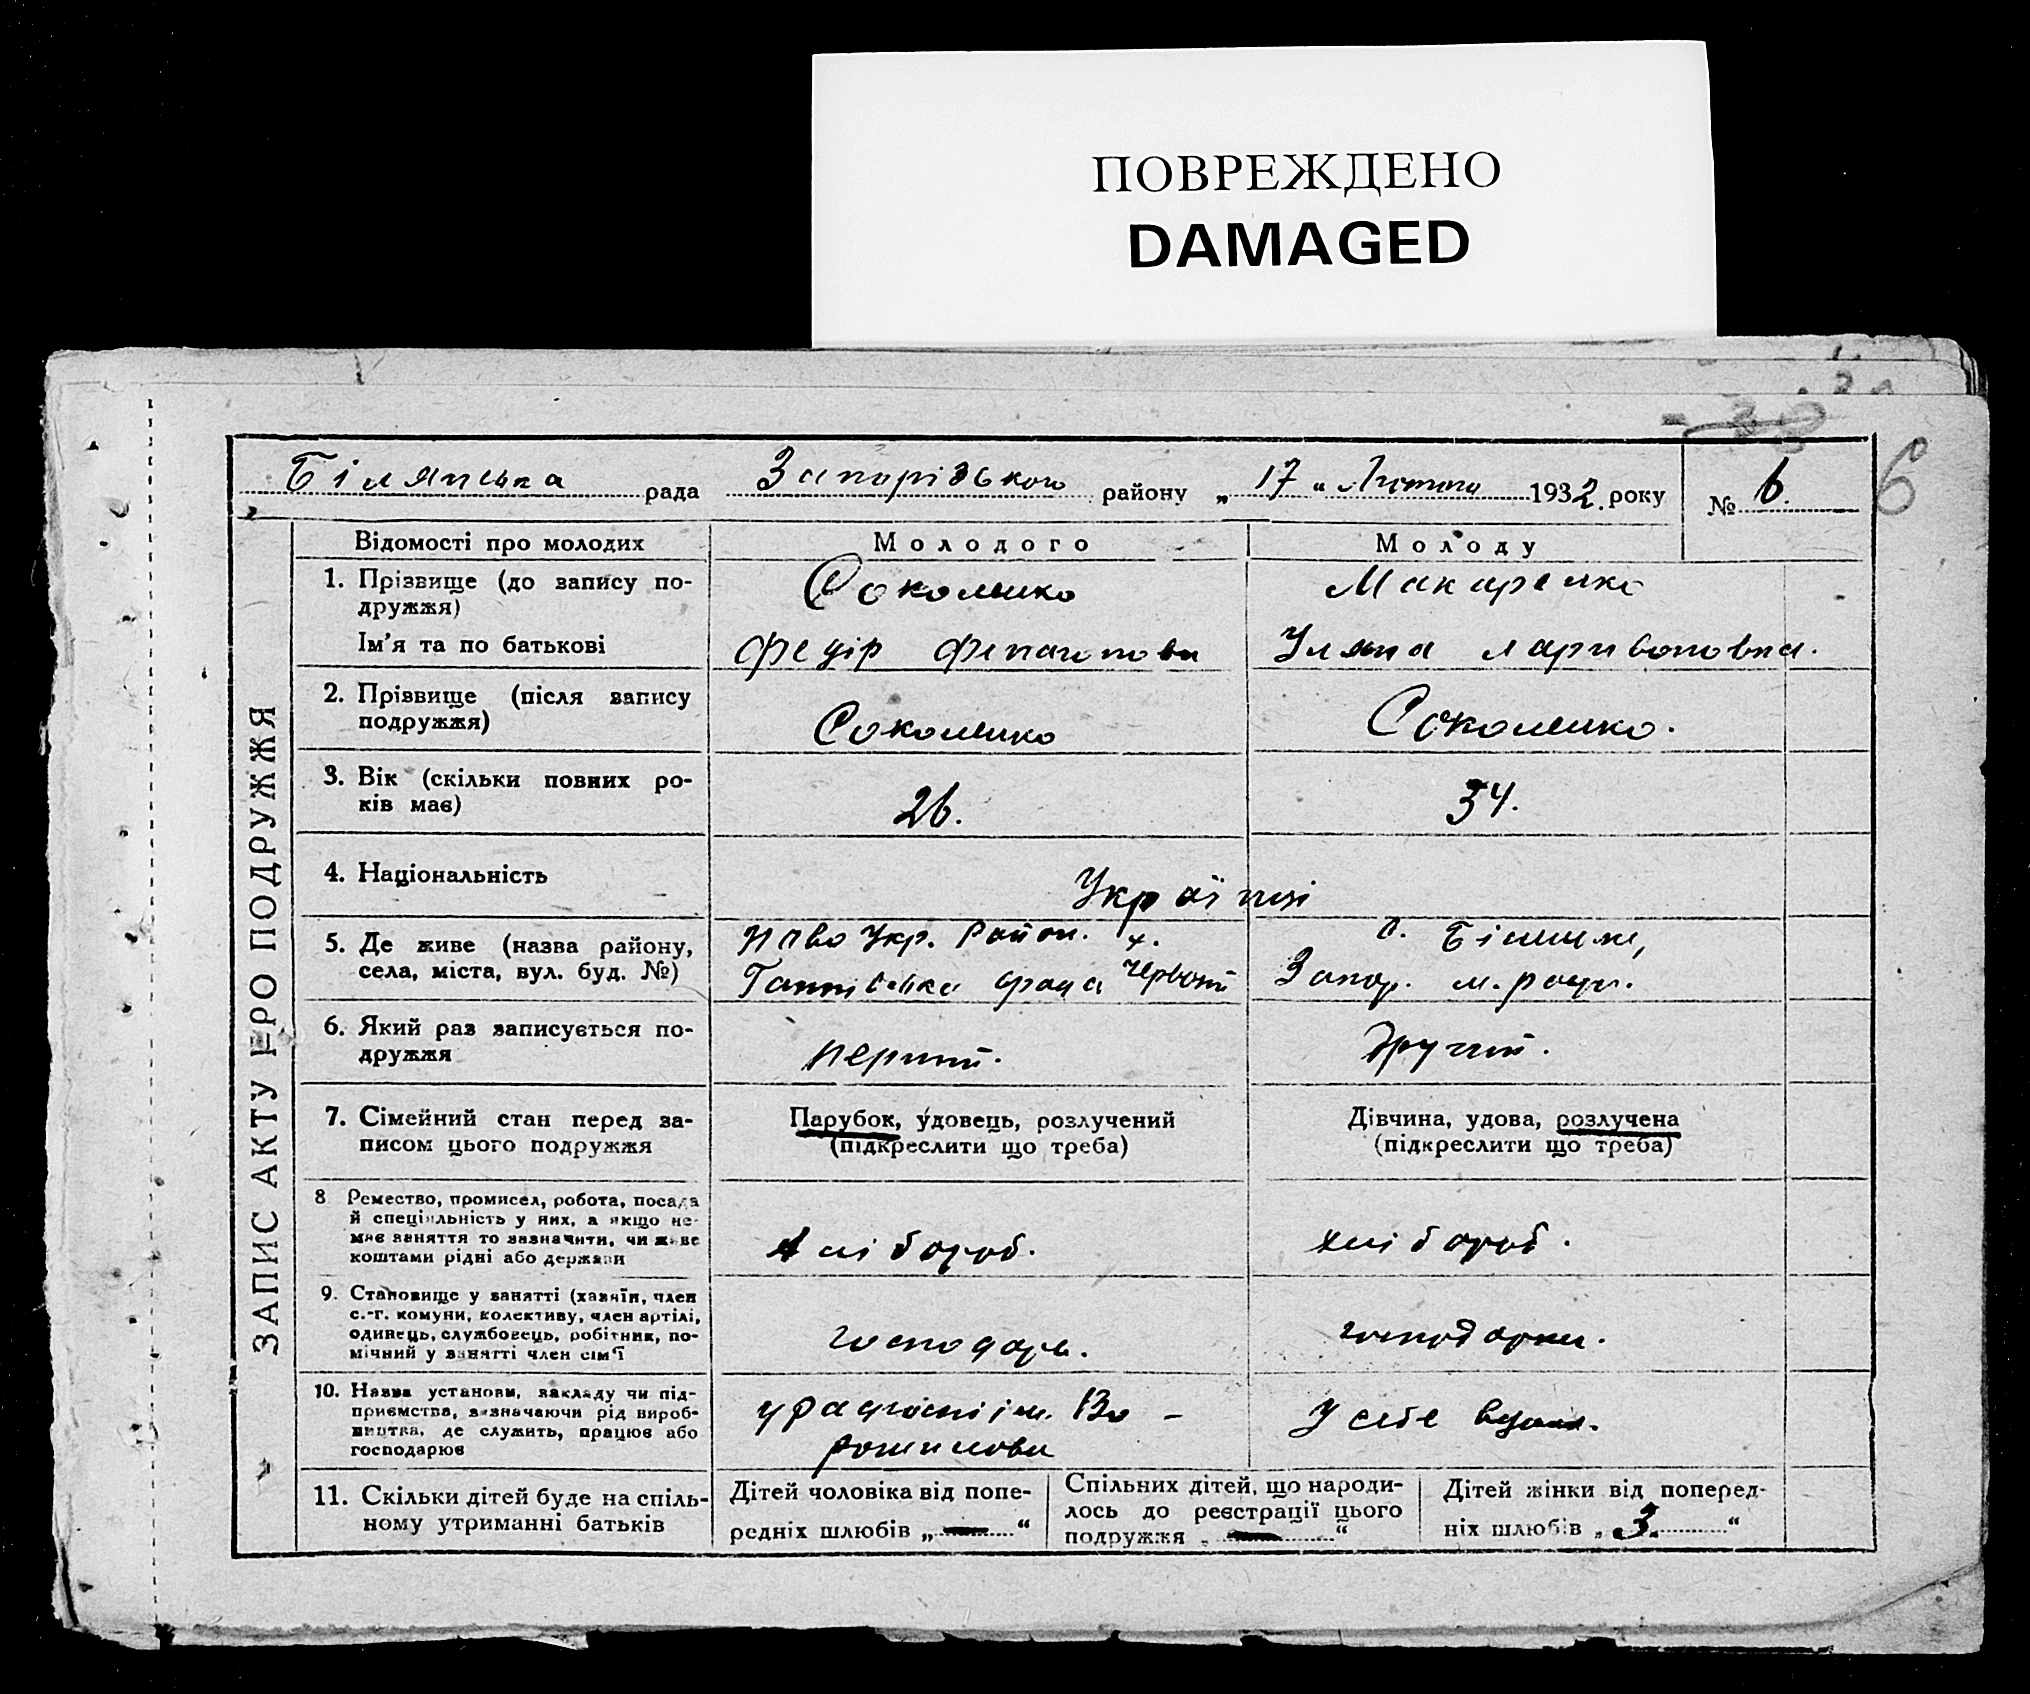 ПОВРЕЖДЕНО
DAMAGED
Білянська рада Запорізького району „ 17 “ Лютого 1932. року № 6. 6
ЗАПИС АКТУ ПРО ПОДРУЖЖЯ
Відомості про молодих Молодого Молоду
1. Прізвище (до запису по-
дружжя) Соколенко Макаренко
Ім’я та по батькові Федір Уляна Ларивоновна.
2. Прізвище (після запису
подружжя) Соколенко Соколенко.
3. Вік (скільки повних ро-
ків має) 26. 34.
4. Національність Українці
5. Де живе (назва району, Ново Укр. Район. х. с. Біленьке,
села, міста, вул. буд. №) Ганнівська срада Запор. м. ради.
6. Який раз записується по-
дружжя перший. другий.
7. Сімейний стан перед за- Парубок, удовець, розлучений Дівчина, удова, розлучена
писом цього подружжя (підкреслити що треба) (підкреслити що треба)
8 Ремество, промисел, робота, посада
й спеціяльність у них, а якщо не-
має заняття то зазначити, чи живе
коштами рідні або держави хлібороб. хлібороб.
9. Становище у занятті (хазяїн, член
с.-г. комуни, колективу, член артілі,
одивець, службовець, робітник, по-
мічний у занятті член сім’ї господарь. господарка.
10. Назва установи, закладу чи під-
приємства, зазначаючи рід вироб-
ництва, де служить, працює або
господарює у радгоспі ім. Во-
рошилова У себе вдома.
11. Скільки дітей буде на спіль-
ному утриманні батьків
Дітей чоловіка від попе-
редніх шлюбів „ — “
Спільних дітей, що народи-
лось до реєстрації цього
подружжя „ — “
Дітей жінки від поперед-
ніх шлюбів „ 3. “